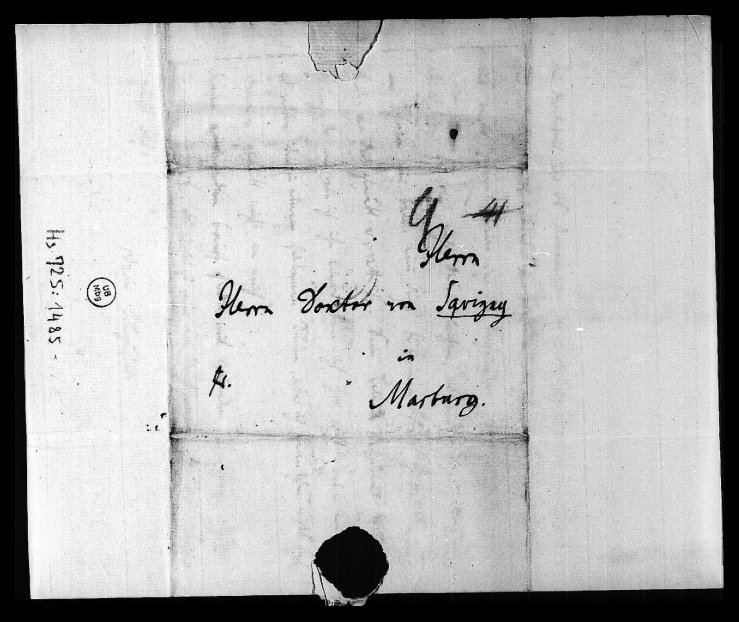 9
Herrn
Herrn Doctor von Savigny
in
fr.
Marburg.
Hs 725:1485
UB
MBG